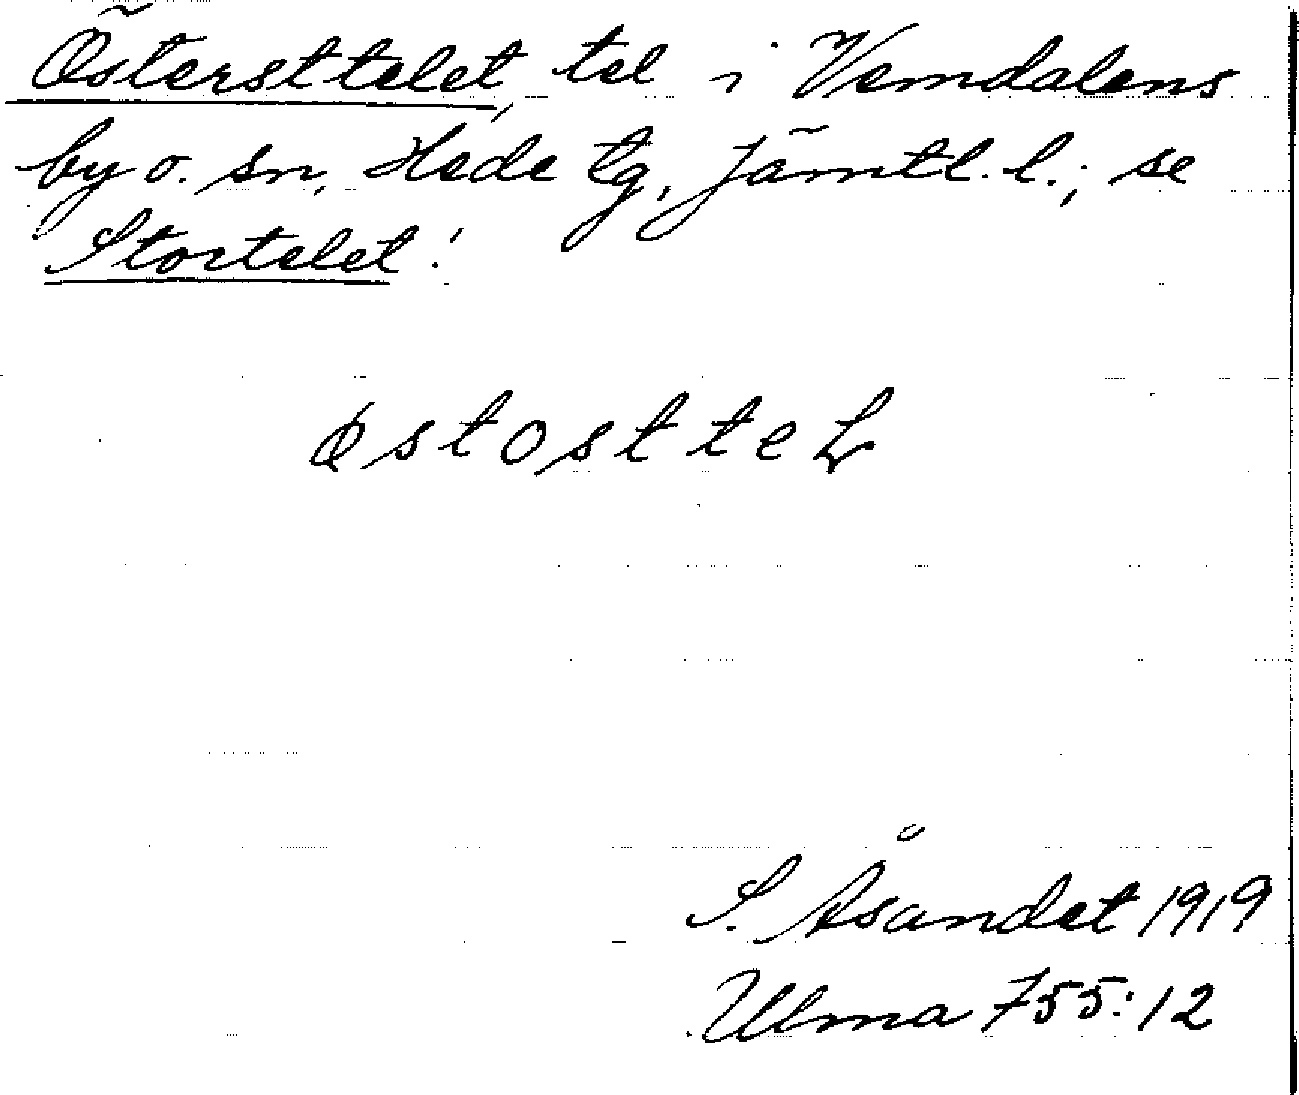 Östersttelet, tel i Vemdalens
by o. sn, Hede tg, Jämtl. l.; se
Stortelet!
østostteł
S. Åsandet 1919
Ulma 755:12